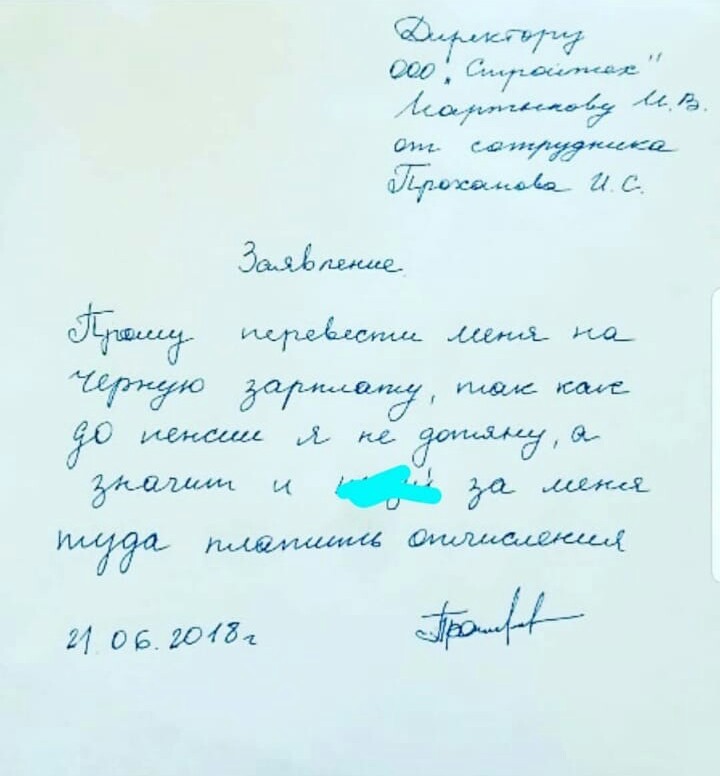 Директору
ООО "Стройтех"
Мартынову И.В.
от сотрудника
Проханова И.С.
Заявление
Прошу перевести меня на
черную зарплату, так как
до пенсии я не дотяну, а
значит и за меня
туда платить отчисления
21.06.2018г